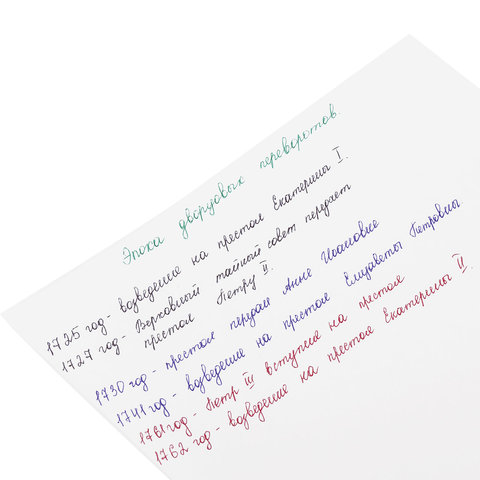 Эпоха дворцовых переворотов.
1725 год - возведение на престол Екатерины I.
1727 год - Верховный тайный совет передаёт
престол Петру II.
1730 год - престол передали Анне Иоановне
1741 год - возведение на престол Елизаветы Петровны
1761 год - Петр III вступил на престол
1762 год - возведение на престол Екатерины II.